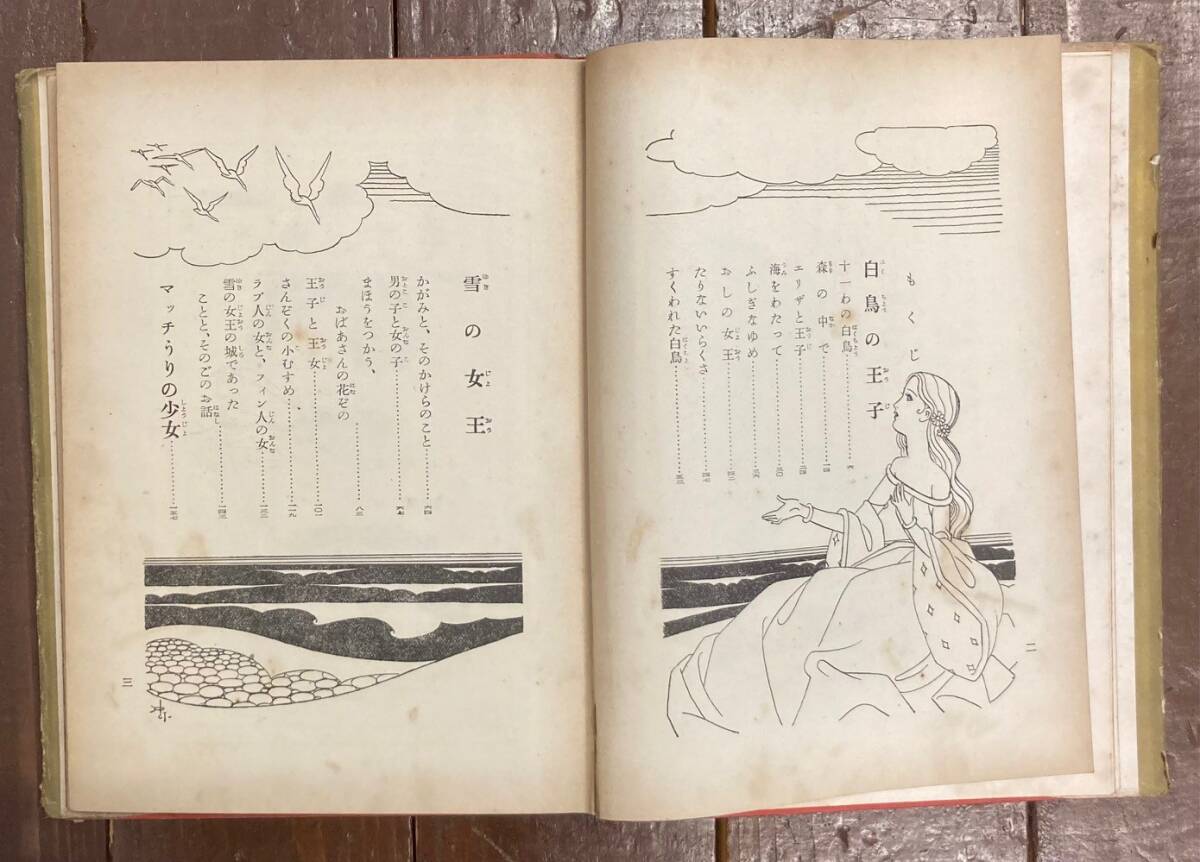 もくじ
白鳥の王子
十一わの白鳥
森の中で……一四
エリザと王子
海をわたって……三〇
ふしぎなゆめ……三六
おしの女王
たりないいらくさ……四七
すくわれた白鳥……五三
二
雪の女王
かがみと、そのかけらのこと……六四
男の子と女の子……六七
まほうをつかう、
おばあさんの花ぞの……八三
王子と王女……一〇一
さんぞくの小むすめ……一一九
ラプ人の女と、フィン人の女
雪の女王の城であった
ことと、そのごのお話……一四三
マッチうりの少女……一五七
三